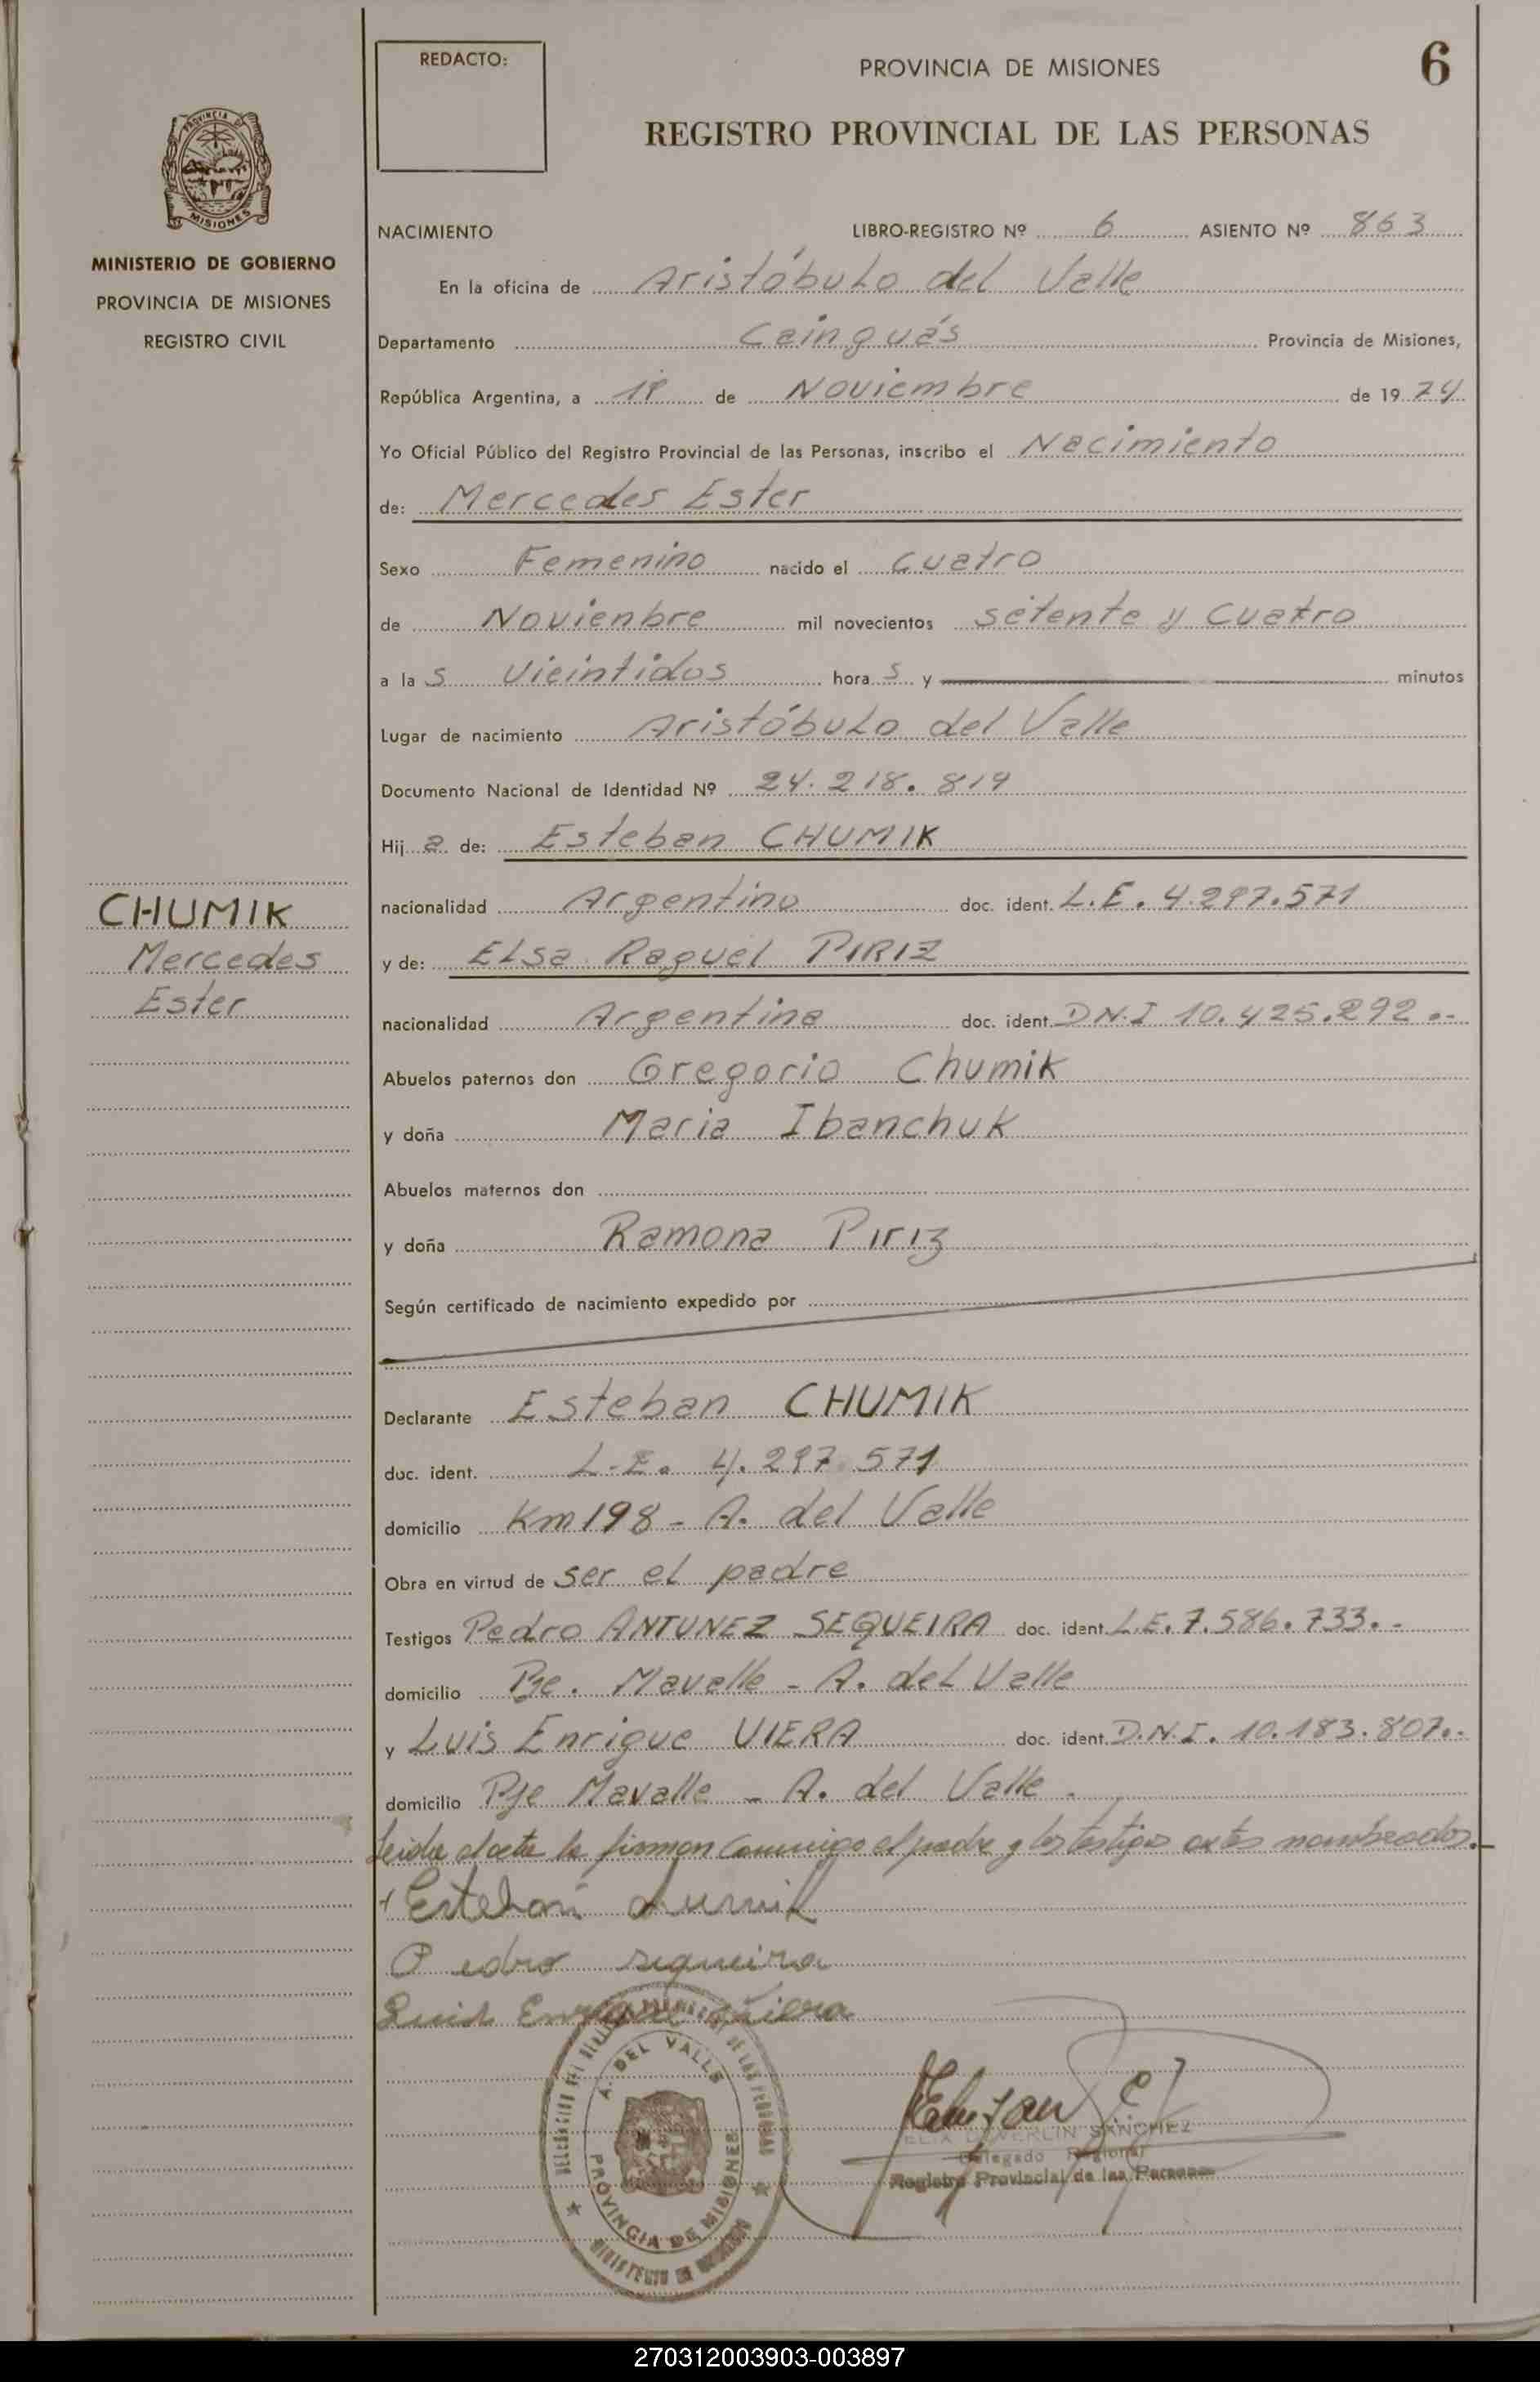 REDACTO:
PROVINCIA DE MISIONES
6
REGISTRO PROVINCIAL DE LAS PERSONAS
PROVINCIA DE
MISIONES
MINISTERIO DE GOBIERNO
PROVINCIA DE MISIONES
REGISTRO CIVIL
NACIMIENTO LIBRO-REGISTRO Nº 6 ASIENTO Nº 863
En la oficina de Aristóbulo del Valle
Departamento Cainguás Provincia de Misiones,
República Argentina, a de Noviembre de 1974
Yo Oficial Público del Registro Provincial de las Personas, inscribo el Nacimiento
de: Mercedes Ester
Sexo Femenino nacido el Cuatro
de Novienbre mil novecientos setenta y Cuatro
a las Vieintidos horas y minutos
Lugar de nacimiento Aristóbulo del Valle
Documento Nacional de Identidad Nº 24.218.819
Hija de: Esteban CHUMIK
nacionalidad Argentino doc. ident. L.E. 4.297.571
y de: Elsa Raquel PIRIZ
nacionalidad Argentina doc. ident. D.N.I 10.425.292.-
CHUMIK
Mercedes
Ester
Abuelos paternos don Gregorio Chumik
y doña Maria Ibanchuk
Abuelos maternos don
y doña Ramona Piriz
Según certificado de nacimiento expedido por
Declarante Esteban CHUMIK
doc. ident. L.E. 4.297.571
domicilio Km 198 - A. del Valle
Obra en virtud de ser el padre
Testigos Pedro ANTUNEZ SEQUEIRA doc. ident. L.E. 7.586.733.-
domicilio Pje. Mavalle - A. del Valle
y Luis Enrique VIERA doc. ident. D.N.I. 10.183.807.-
domicilio Pje Mavalle - A. del Valle.
Leida el acta la firman conmigo el padre y los testigos antes nombrados.
Esteban
Pedro sequeira
Luis Enrique Viera
A. DEL VALLE
PROVINCIA DE MISIONES
DE LAS PERSONAS
MINISTERIO DE GOBIERNO
SANCHEZ
Delegado Regional
Registro Provincial de las Personas
270312003903-003897